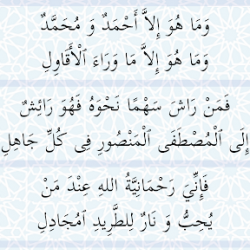 وَمَا هُوَ إِلاَّ أَحْمَدٌ وَ مُحَمَّدٌ
وَمَا هُوَ إِلاَّ مَا وَرَاءَ ٱلْأَقَاوِلِ
فَمَنْ رَاشَ سَهْمًا نَحْوَهُ فَهُوَ رَائِشٌ
إِلَى ٱلْمُصْطَفَى ٱلْمَنْصُورِ فِى كُلِّ جَاهِلِ
فَإِنِّيَ رَحْمَانِيَّةُ اللهِ عِنْدَ مَنْ
يُحِبُّ وَ نَارٌ لِلطَّرِيدِ ٱمُجَادِلِ